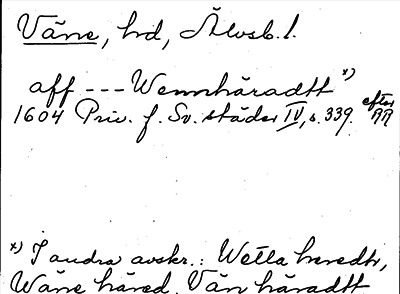 Väne, hrd, Älvsb. l.
aff --- Wennhäradtt *)
1604 Priv. f. Sv. städer IV, s. 339. efter RR
*) I andra avskr.: Wetla heredtr,
Wäne häred, Vän häradtt